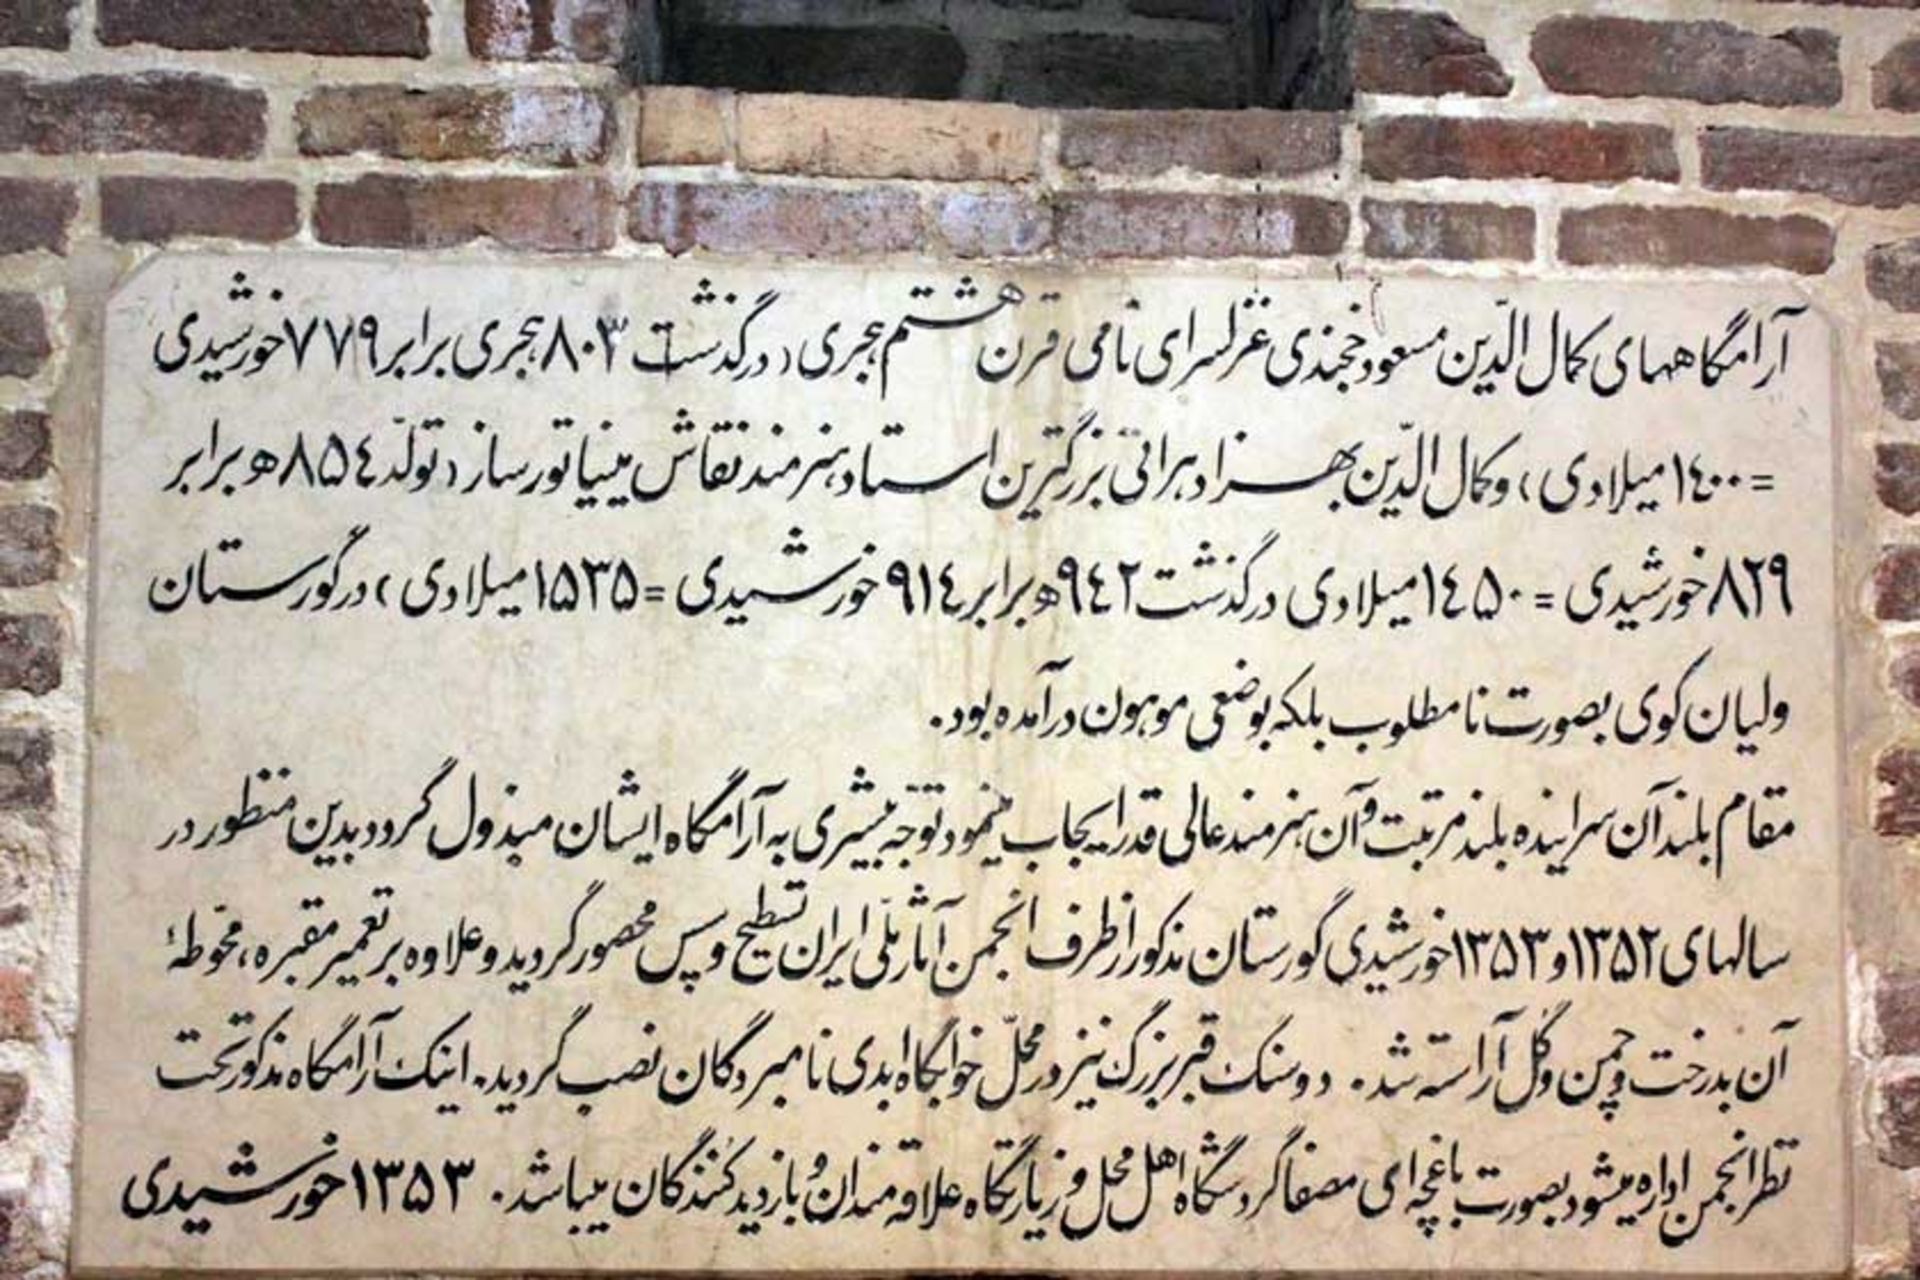 آرامگاههای کمال الدّین مسعود خجندی غزلسرای نامی قرن هشتم هجری (درگذشت ۸۰۳ هجری برابر ۷۷۹ خورشیدی
= ۱۴۰۰ میلادی) و کمال الدّین بهزاد هراتی بزرگترین استاد هنرمند نقاش مینیاتورساز (تولّد ۸۵۴ ه برابر
۸۲۹ خورشیدی = ۱۴۵۰ میلادی درگذشت ۹۴۲ ه برابر ۹۱۴ خورشیدی = ۱۵۳۵ میلادی) در گورستان
ولیان کوی بصورت نامطلوب بلکه بوضعی موهون درآمده بود.
مقام بلند آن سراینده بلند مرتبت و آن هنرمند عالی قدر ایجاب مینمود توجّه بیشتری به آرامگاه ایشان مبذول گردد بدین منظور در
سالهای ۱۳۵۲ و ۱۳۵۳ خورشیدی گورستان مذکور از طرف انجمن آثار ملّی ایران تسطیح و سپس محصور گردید و علاوه بر تعمیر مقبره، محوّطهٔ
آن بدرخت و چمن و گل آراسته شد. دو سنگ قبر بزرگ نیز در محلّ خوابگاه ابدی نامبردگان نصب گردید. اینک آرامگاه مذکور تحت
نظر انجمن اداره میشود بصورت باغچه ای مصفا گردشگاه اهل محل و زیارتگاه علاقه مندان و بازدید کنندگان میباشد. ۱۳۵۳ خورشیدی